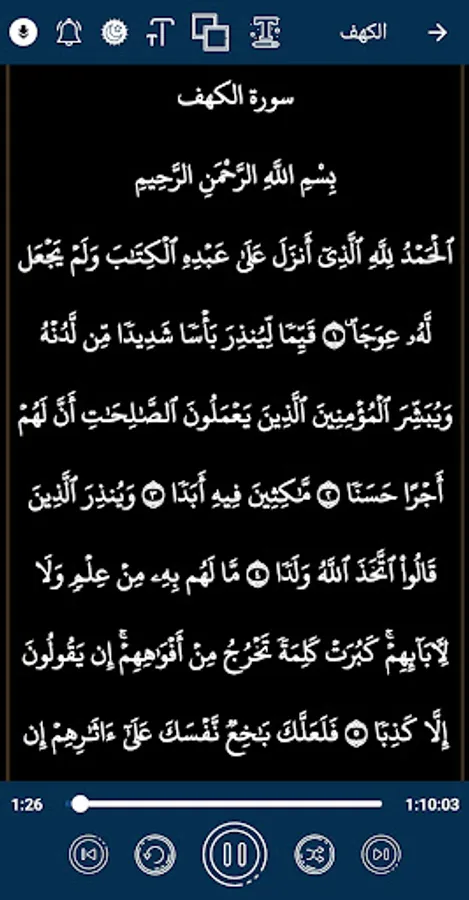 الكهف
سورة الكهف
بِسْمِ اللَّهِ الرَّحْمَنِ الرَّحِيمِ
ٱلْحَمْدُ لِلَّهِ ٱلَّذِىٓ أَنزَلَ عَلَىٰ عَبْدِهِ ٱلْكِتَٰبَ وَلَمْ يَجْعَل
لَّهُۥ عِوَجَاۜ ١ قَيِّمًا لِّيُنذِرَ بَأْسًا شَدِيدًا مِّن لَّدُنْهُ
وَيُبَشِّرَ ٱلْمُؤْمِنِينَ ٱلَّذِينَ يَعْمَلُونَ ٱلصَّٰلِحَٰتِ أَنَّ لَهُمْ
أَجْرًا حَسَنًا ٢ مَّٰكِثِينَ فِيهِ أَبَدًا ٣ وَيُنذِرَ ٱلَّذِينَ
قَالُوا۟ ٱتَّخَذَ ٱللَّهُ وَلَدًا ٤ مَّا لَهُم بِهِۦ مِنْ عِلْمٍ وَلَا
لِـَٔابَآئِهِمْ ۚ كَبُرَتْ كَلِمَةً تَخْرُجُ مِنْ أَفْوَٰهِهِمْ ۚ إِن يَقُولُونَ
إِلَّا كَذِبًا ٥ فَلَعَلَّكَ بَٰخِعٌ نَّفْسَكَ عَلَىٰٓ ءَاثَٰرِهِمْ إِن
1:26
1:10:03